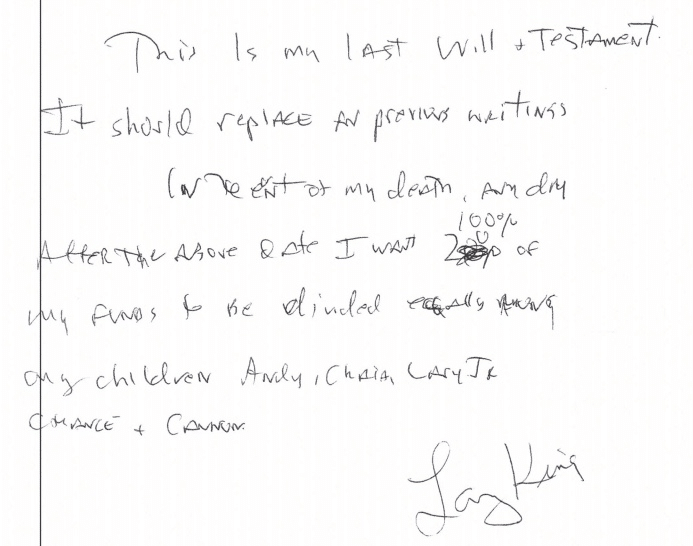 This Is my last Will + Testament.
It should replace all previous writings
In the event of my death, any day
After the Above Date I want
100%
of
my funds to be divided equally among
my children Andy, Chaia, Larry Jr
Chance + Cannon
Larry King